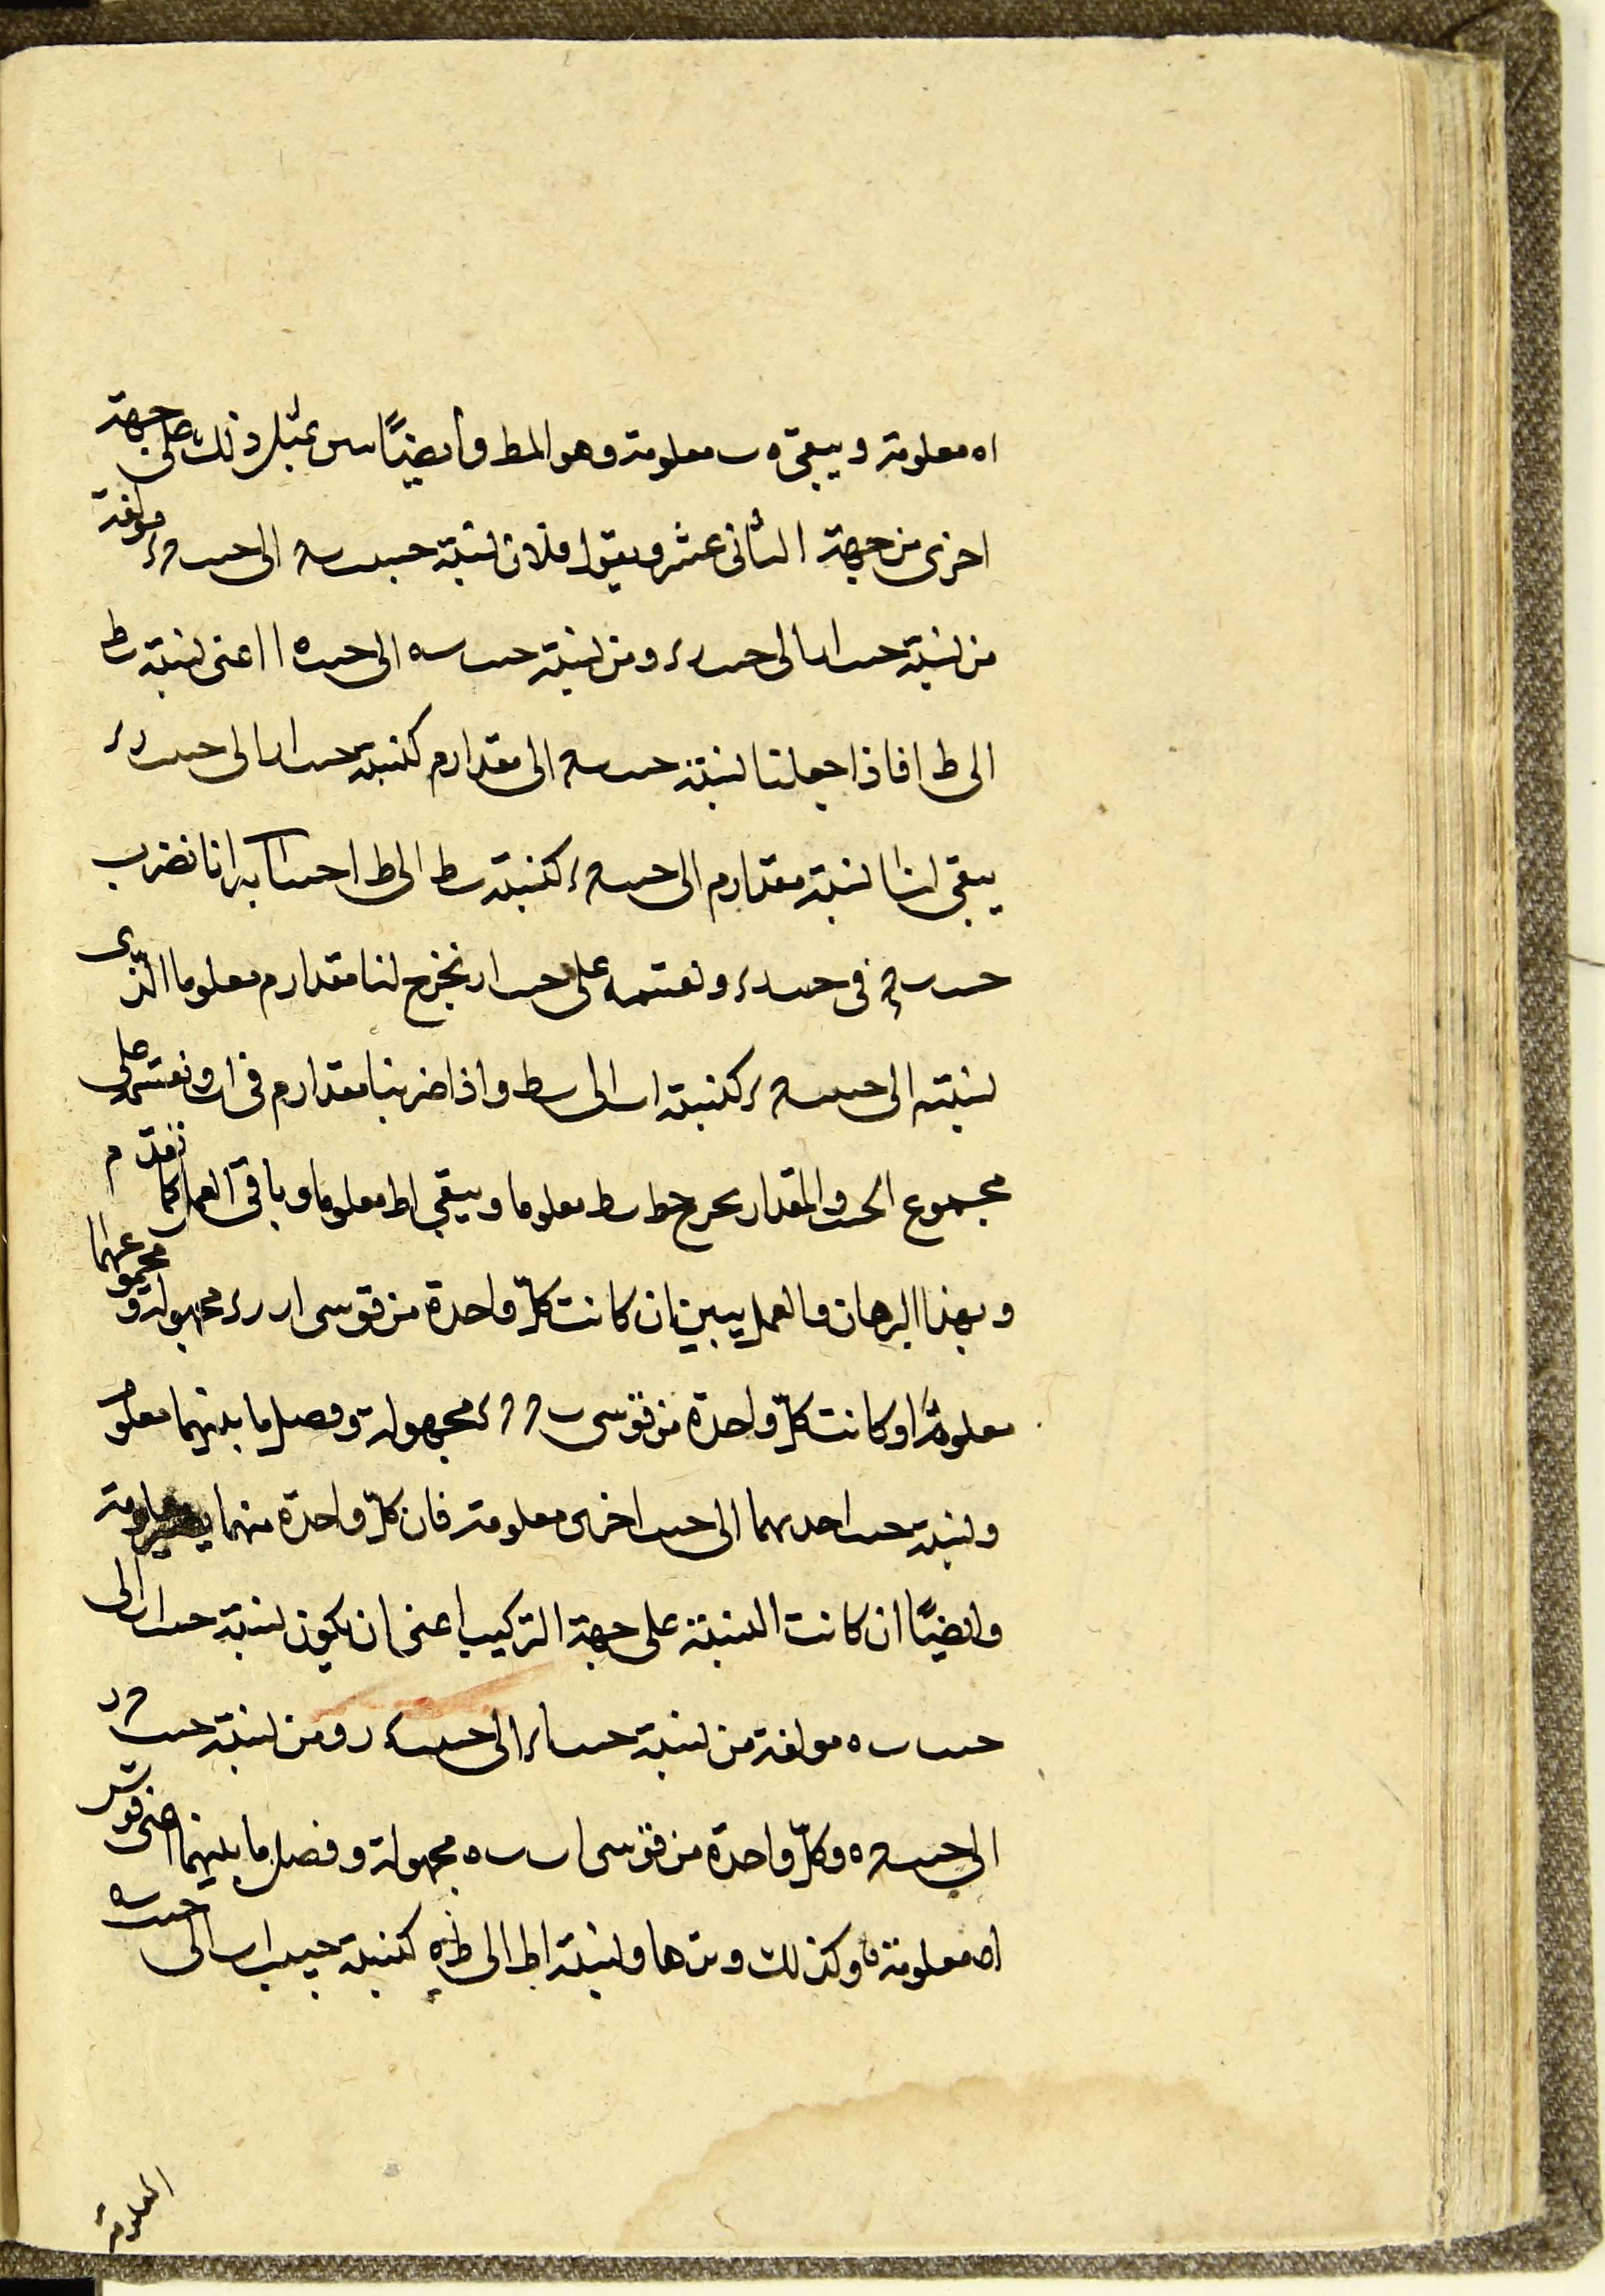 اه معلومة ويبقى ه ب معلومة وهو المط وأيضًا س بمثل ذلك على جهة
اخرى من جهة الثانى عشر ويقول فلان نسبة جيب ب ح الى جيب ح ء مولفة
من نسبة جيب ار الى جيب رء ومن نسبة جيب ب ه الى جيب ه ا اعنى نسبة ب ط
الى ط ا فاذا جعلنا نسبة جيب ب ح الى مقدار م كنسبة جيب ار الى جيب رء
يبقى لنا نسبة مقدار م الى جيب ح ء كنسبة ب ط الى ط ا حسابه انا نضرب
جيب ب ح فى جيب رء ونقسمه على جيب ار نخرج لنا مقدار م معلوما الذى
نسبته الى جيب ح ء كنسبة اب الى ب ط واذا ضربنا مقدار م فى اب ونقسمه على
مجموع الجيب والمقدار يخرج خط ب ط معلوما ويبقى اط معلوما وباقى العمل كما تقدم
وبهذا البرهان والعمل يبين ان كانت كلّ واحدة من قوسى ار رء مجهولة ومجموعهما
معلومةً او كانت كلّ واحدة من قوسى ب ح ح ء مجهولة وفصل ما بينهما معلوم
ونسبة جيب احديهما الى جيب اخرى معلومة فان كلّ واحدة منهما يصير معلومة
وايضًا ان كانت النسبة على جهة التركيب اعنى ان يكون نسبة جيب اب الى
جيب ب ه مولفة من نسبة جيب اء الى جيب ء ر ومن نسبة جيب ح ر
الى جيب ح ه وكلّ واحدة من قوسى اب ب ه مجهولة وفصل ما بينهما اعنى قوس
اه معلومة وكذلك وترها ونسبة اط الى ط ه كنسبة جيب اب الى جيب ب ه
المعلومة